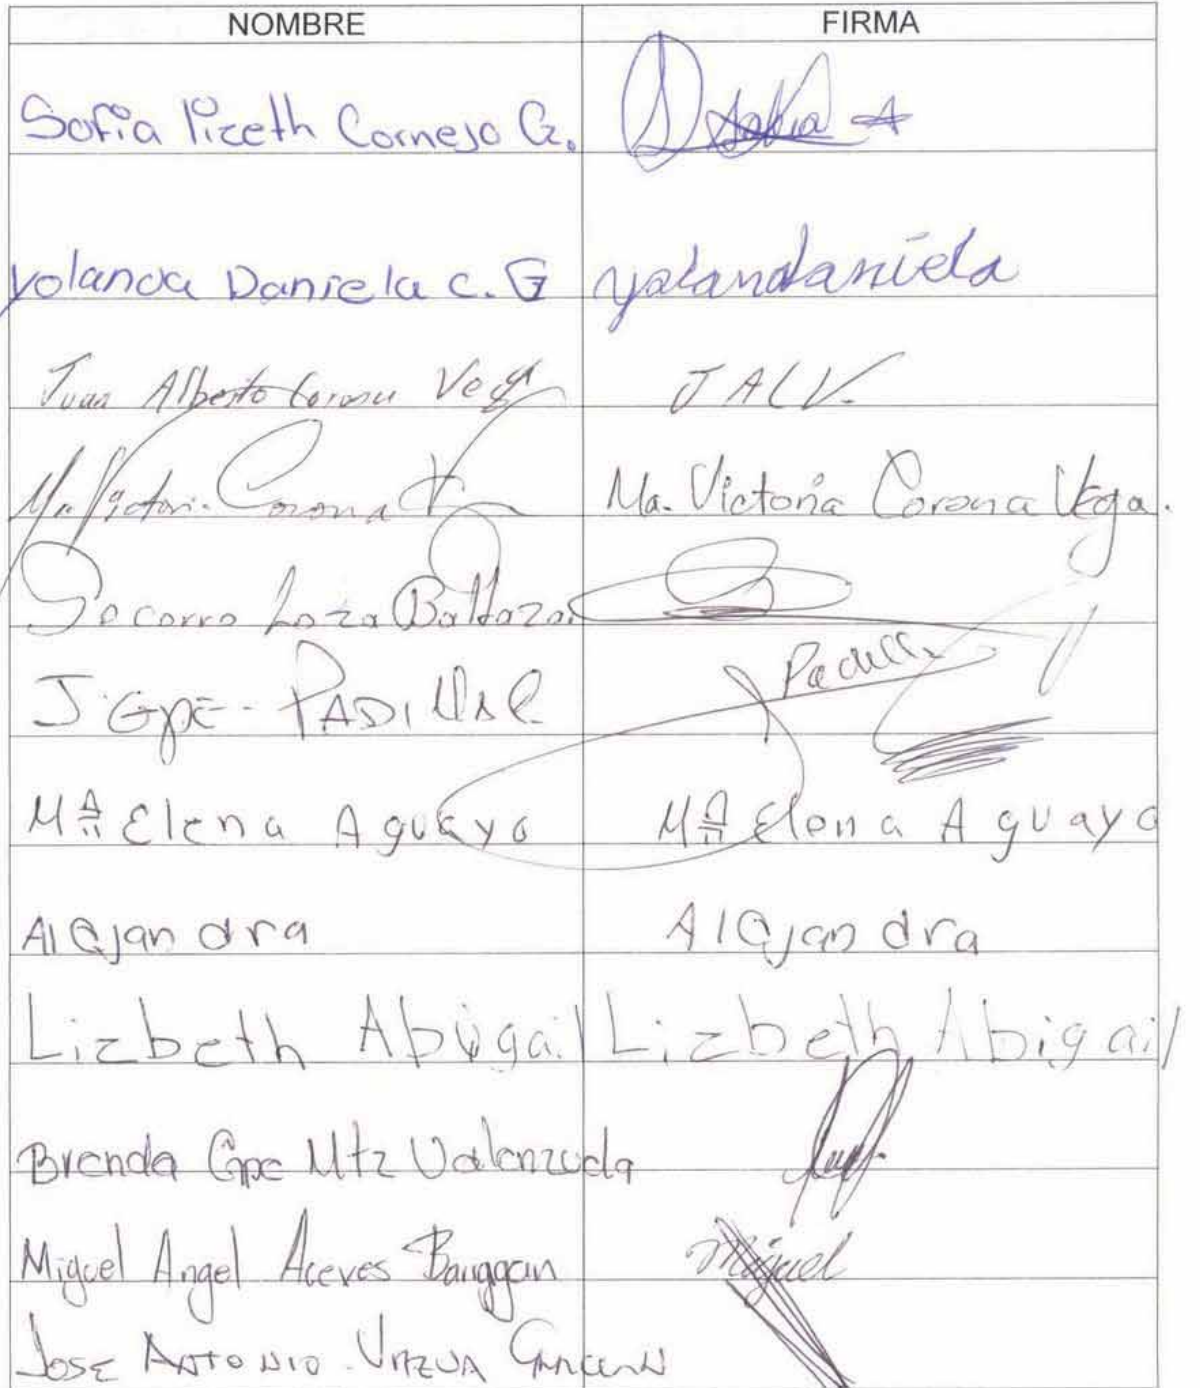 NOMBRE FIRMA
Sofia lizeth Cornejo G. Sofia
yolanda Daniela C. G yolandaniela
Juan Alberto Corona Vega JALV.
Ma. Victoria Corona V Ma. Victoria Corona Vega.
Socorro Loza Baltazar
J. Gpe. PADILLA Padilla
Mª Elena Aguayo Mª Elena Aguayo
Alejandra Alejandra
Lizbeth Abigail Lizbeth Abigail
Brenda Gpe Mtz Valenzuela
Miguel Angel Aceves Miguel
JOSE ANTONIO